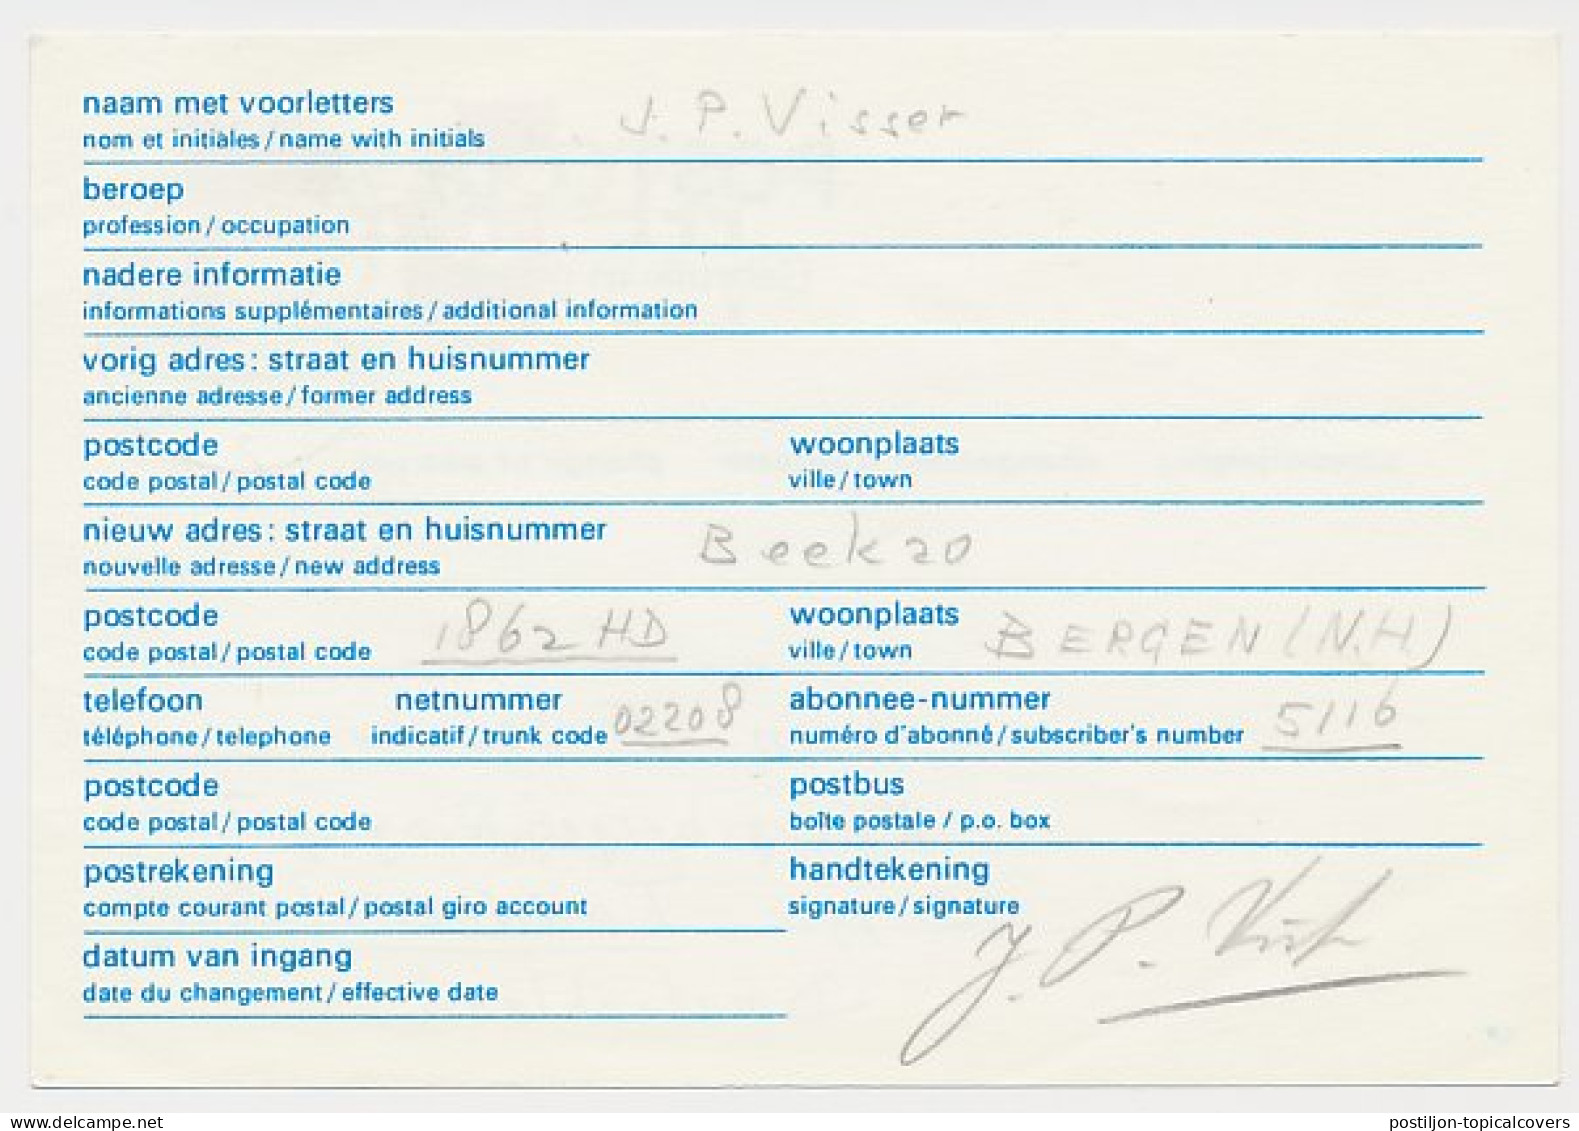 naam met voorletters J. P. Visser
nom et initiales / name with initials
beroep
profession / occupation
nadere informatie
informations supplémentaires / additional information
vorig adres: straat en huisnummer
ancienne adresse / former address
postcode woonplaats
code postal / postal code ville / town
nieuw adres: straat en huisnummer Beek 20
nouvelle adresse / new address
postcode 1862 HD woonplaats BERGEN (N.H.)
code postal / postal code ville / town
telefoon netnummer 02208 abonnee-nummer 5116
téléphone / telephone indicatif / trunk code numéro d'abonné / subscriber's number
postcode postbus
code postal / postal code boîte postale / p.o. box
postrekening handtekening
compte courant postal / postal giro account signature / signature
J. P.
datum van ingang
date du changement / effective date
delcampe.net
postiljon-topicalcovers